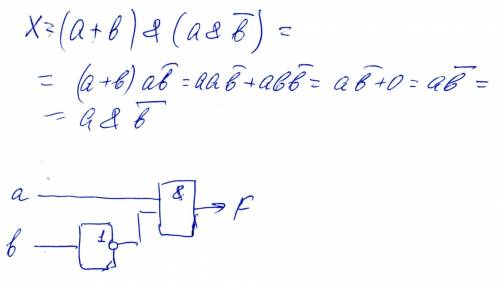 X = (a + b) & (a & b̅) =
= (a+b) ab̅ = aab̅ + abb̅ = ab̅ + 0 = ab̅ =
= a & b̅
a & F
b 1